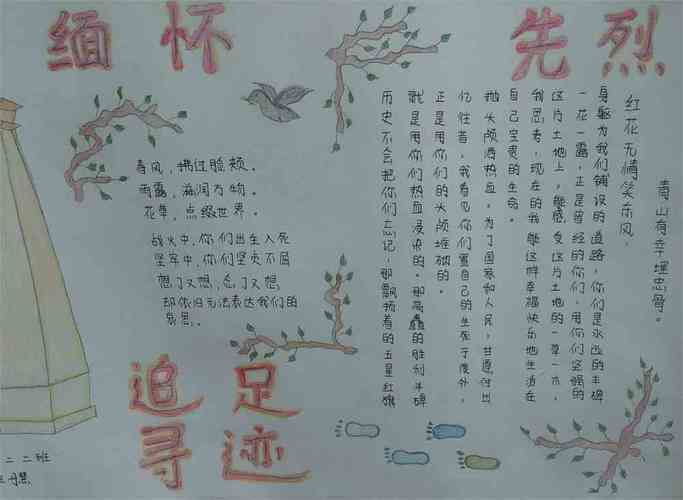 缅怀先烈
春风，拂过脸颊。
雨露，滋润万物。
花草，点缀世界。
战火中，你们出生入死
坚牢中，你们坚贞不屈
想了又想，忘了又想
却依旧无法表达我们的
哀思。
历史不会把你们忘记，那飘扬着的五星红旗
就是用你们热血浸染的。那高矗的胜利丰碑
正是用你们的头颅堆砌的。
忆往昔，我看见你们置自己的生死于度外，
抛头颅洒热血。为了国家和人民，甘愿付出
自己宝贵的生命。
我思考，现在的我能这样幸福快乐地生活在
这片土地上，能感受这片土地的一草一木，
一花一露，正是曾经的你们，用你们坚强的
身躯为我们铺设的道路，你们是永远的丰碑
红花无情笑东风，
青山有幸埋忠骨。
追寻
足迹
二二班